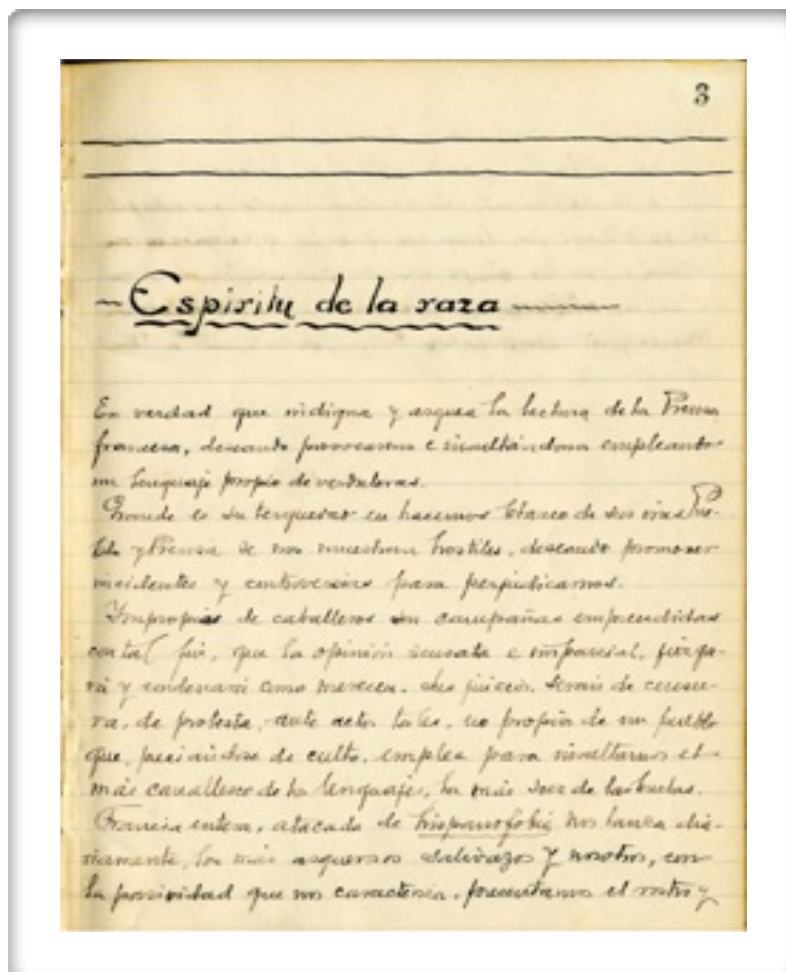 3
Espiritu de la raza
En verdad que indigna y asquea la lectura de la Prensa
francesa, deseando provocarnos e insultándonos empleando
un lenguaje propio de verduleras.
Grande es su terquedad en hacernos blanco de sus iras Pue-
blo y Prensa se nos muestran hostiles, deseando promover
incidentes y controversias para perjudicarnos.
Impropias de caballeros son campañas emprendidas
con tal fin, que la opinión sensata e imparcial, juzga-
rá y condenará como merecen. Sus juicios, serán de censu-
ra, de protesta, ante actos tales, no propios de un pueblo
que, preciándose de culto, emplea para insultarnos el
más canallesco de los lenguajes, la más soez de las burlas.
Francia entera, atacada de hispanofobia nos lanza dia-
riamente, los más asquerosos salivazos y nosotros, con
la pasividad que nos caracteriza, presentamos el rostro y